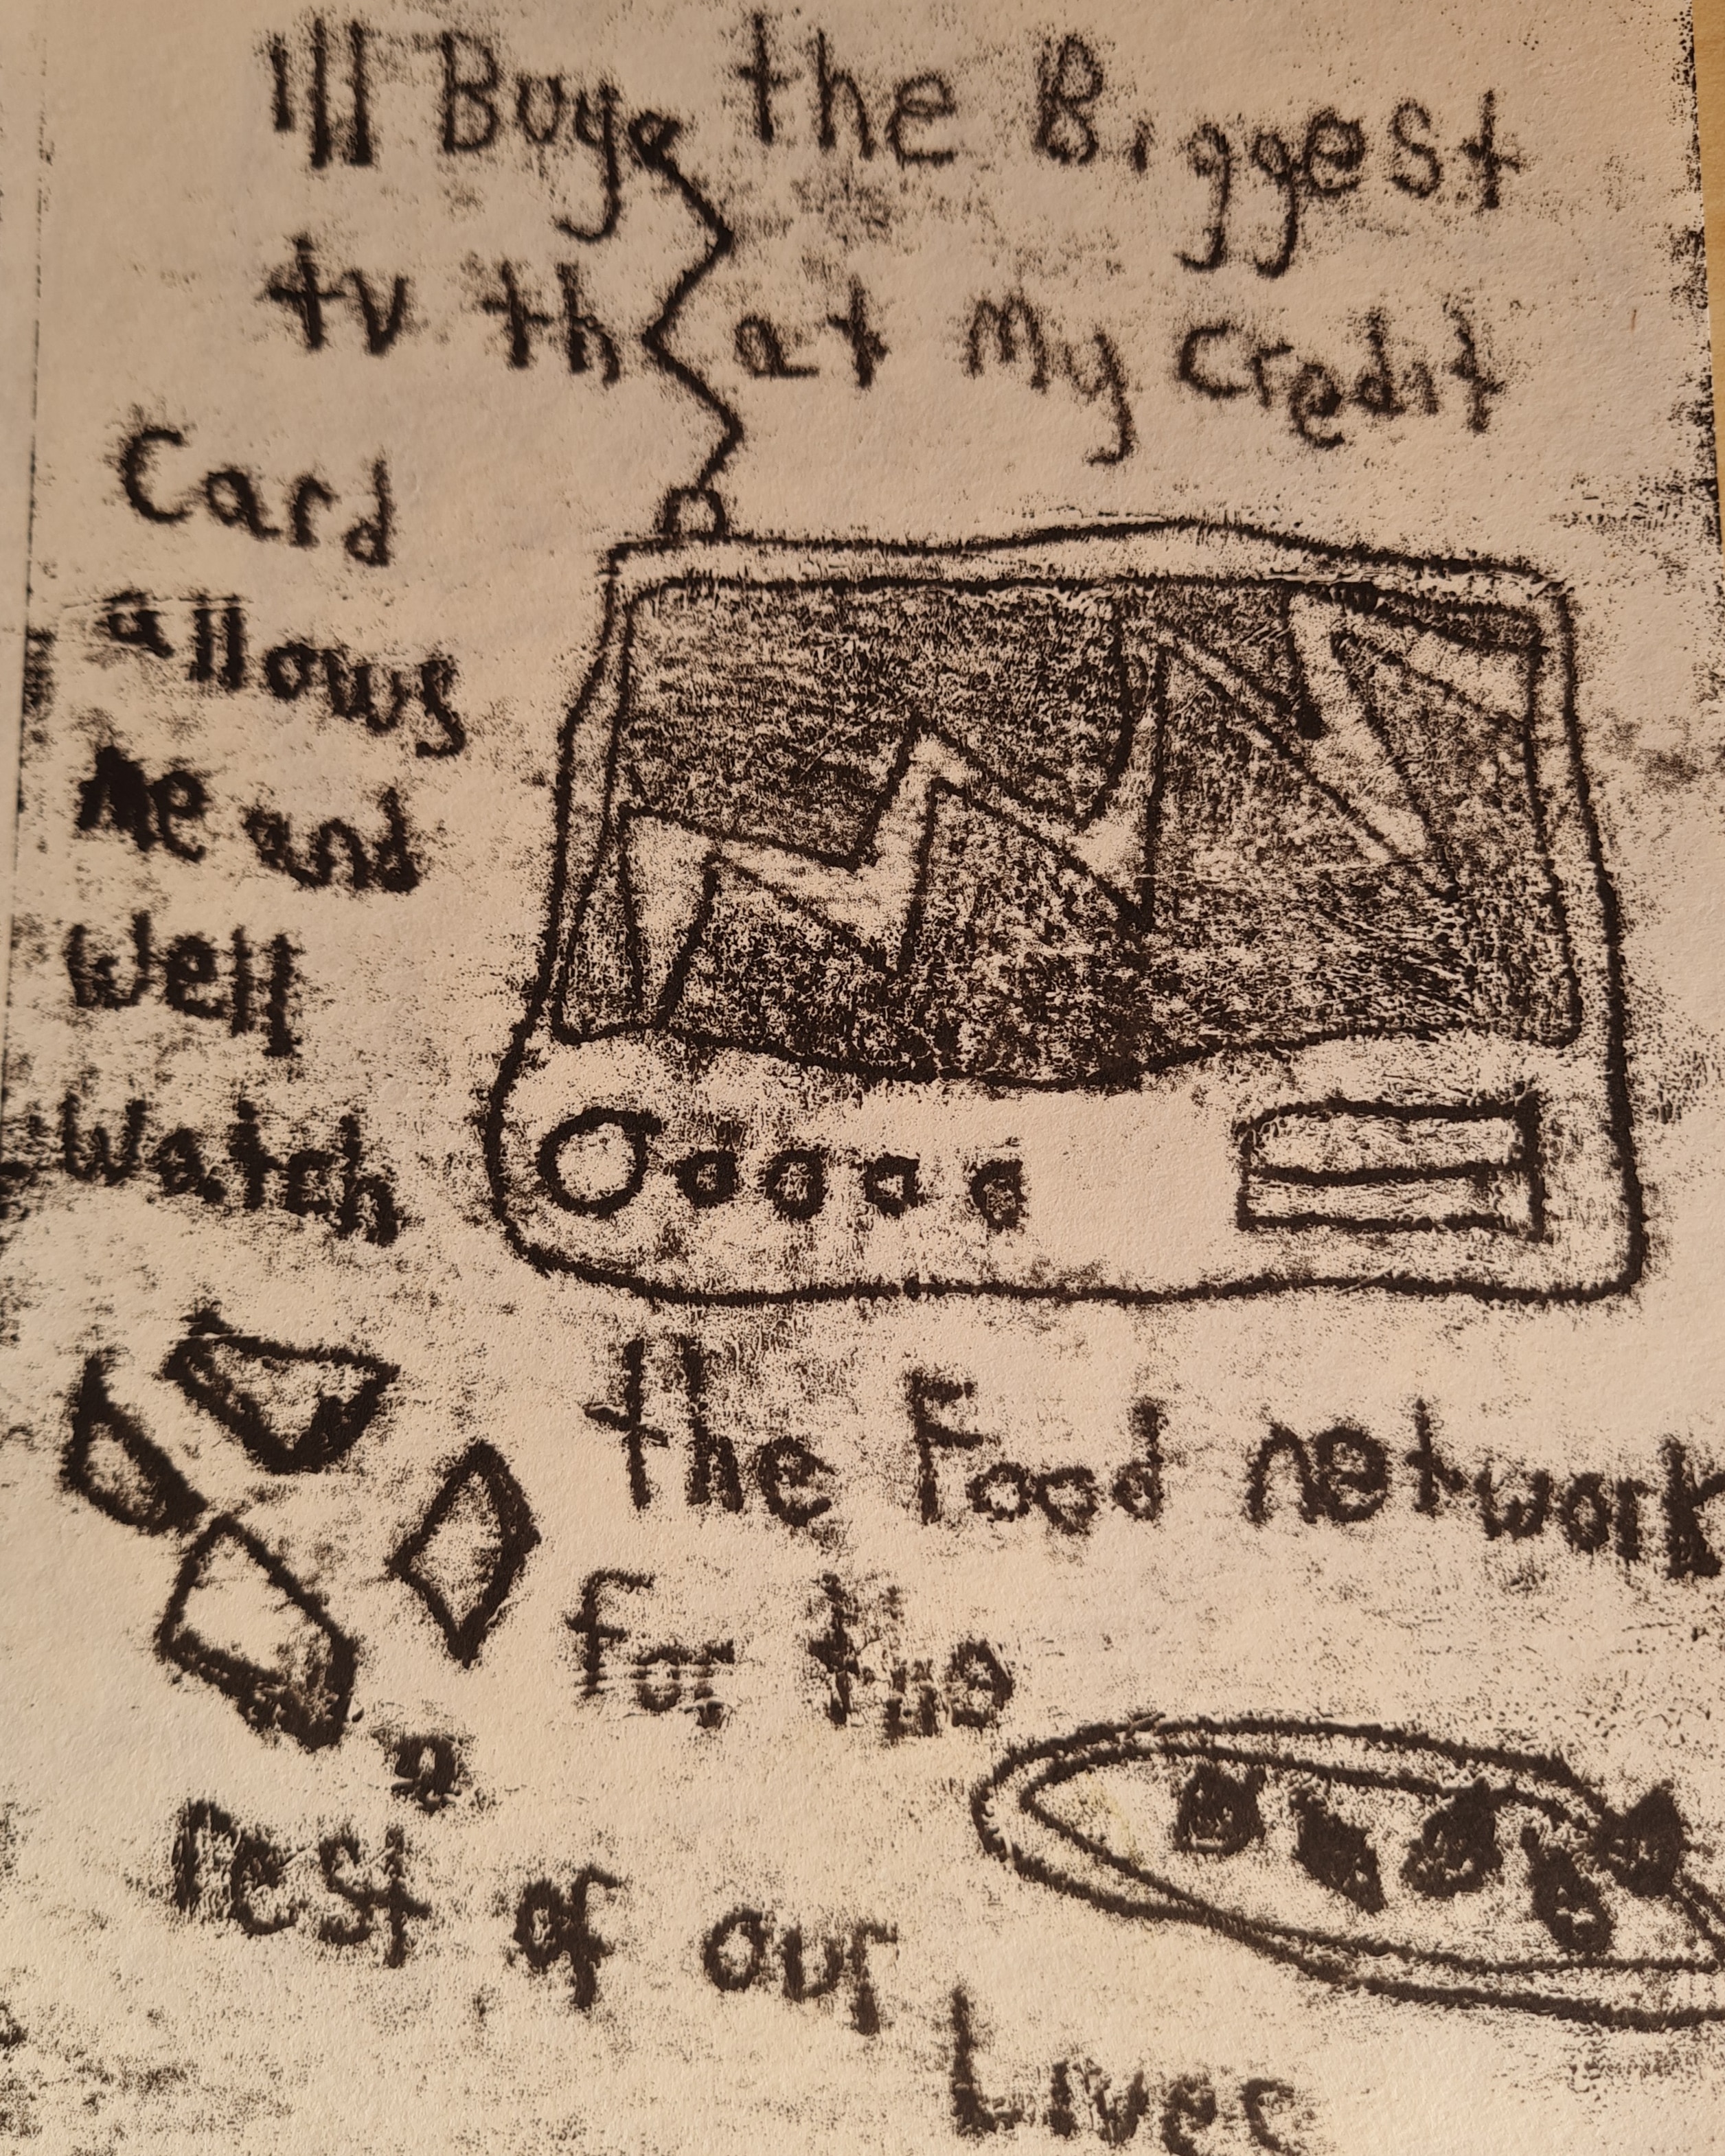 Ill Buy the Biggest
tv that My credit
Card
allows
Me and
well
watch
the Food network
for the
rest of our
Lives